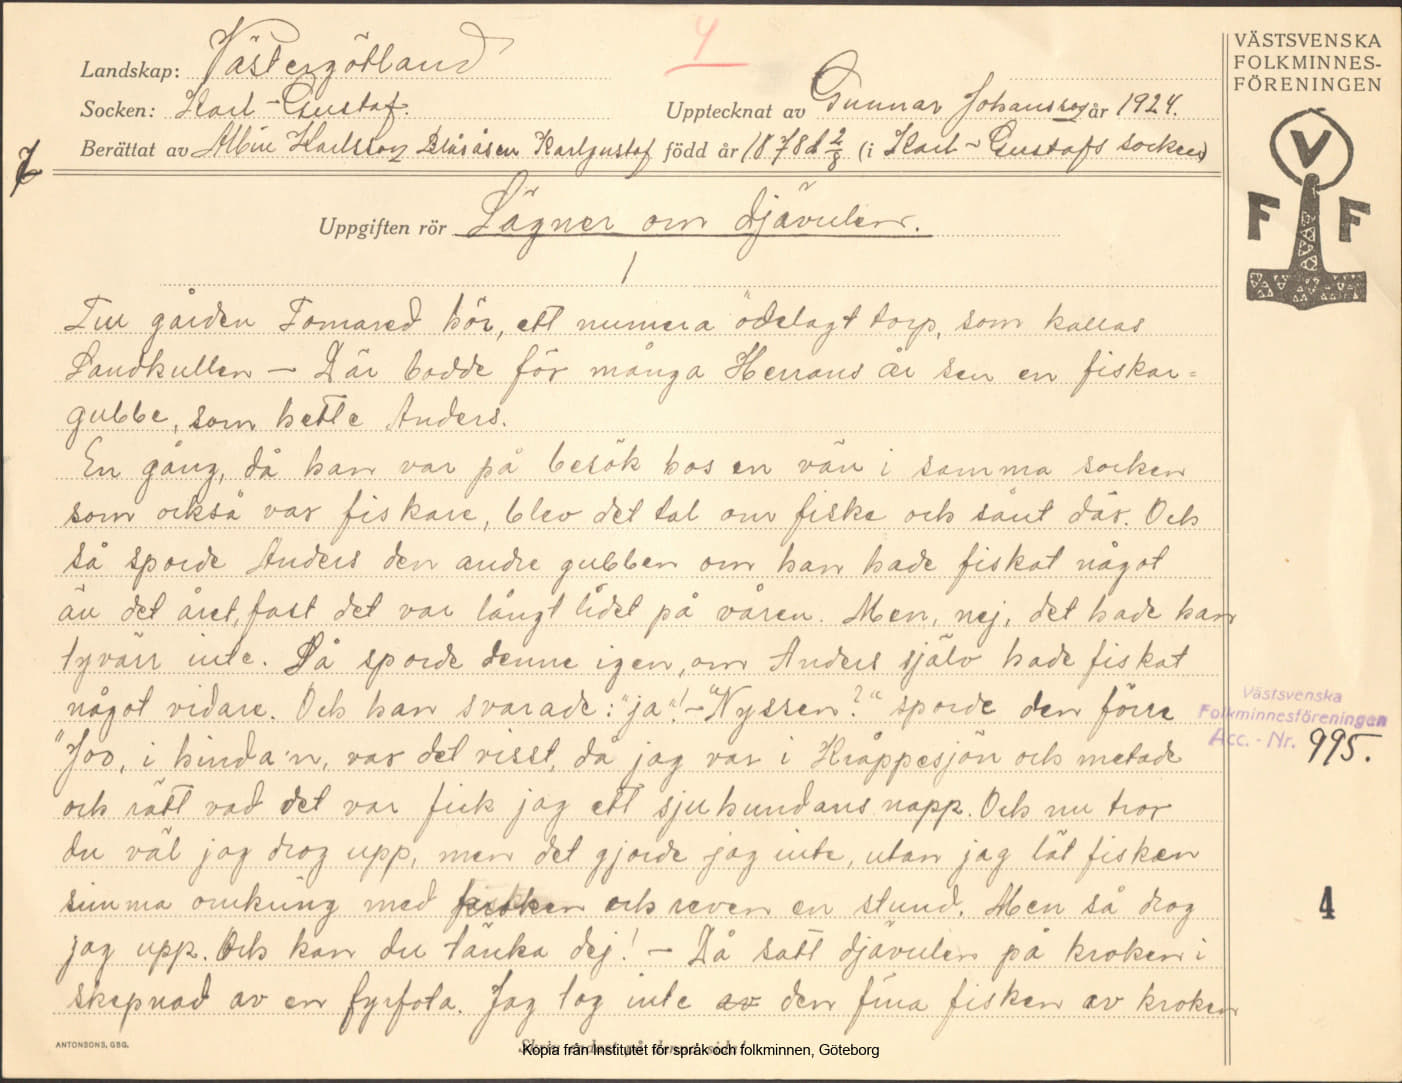 4
Landskap: Västergötland
Socken: Karl-Gustaf.
Upptecknat av Gunnar Johansson år 1924.
Berättat av Albin Karlsson Blåsåsen Karlgustaf född år 1878 d 2/8 (i Karl-Gustafs socken)
Uppgiften rör Sägner om djävulen.
1
Till gården Tomared hör, ett numera ödelagt torp, som kallas
Sandkullen — Där bodde för många Herrans år sen en fiskar=
gubbe, som hette Anders.
En gång, då han var på besök hos en vän i samma socken
som också var fiskare, blev det tal om fiske och sånt där. Och
så sporde Anders den andre gubben om han hade fiskat något
än det året, fast det var långt lidet på våren. Men, nej, det hade han
tyvärr inte. Så sporde denne igen, om Anders själv hade fiskat
något vidare. Och han svarade: "ja"! — "Nyssen?" sporde den förre
"Joo, i hinda'n, var det visst, då jag var i Kråppesjön och metade
och rätt vad det var fick jag ett sjuhundans napp. Och nu tror
du väl jag drog upp, men det gjorde jag inte, utan jag lät fisken
simma omkring med kroken och reven en stund. Men så drog
jag upp. Och kan du tänka dej! — Då satt djävulen på kroken i
skepnad av en fyrfota. Jag tog inte av den fina fisken av kroken
VÄSTSVENSKA
FOLKMINNES-
FÖRENINGEN
V
F F
Västsvenska
Folkminnesföreningen
Acc. - Nr. 995.
4
ANTONSONS, GBG.
Skriv endast på denna sida!
Kopia från Institutet för språk och folkminnen, Göteborg